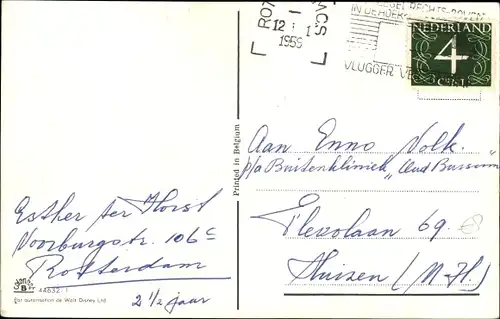 ZEGEL RECHTS-BOVEN
IN DE ADRES
ROT
12 1
1959
VLUGGER
NEDERLAND
4
CENT
Printed in Belgium
Aan Enno Volk.
p/a Buitenkliniek „Oud Bussum"
Flevolaan 69.
Huizen (N-H.)
Esther ter Horst
Voorburgstr. 106c
Rotterdam
2 1/2 jaar
44632
Par autorisation de Walt Disney Ltd.